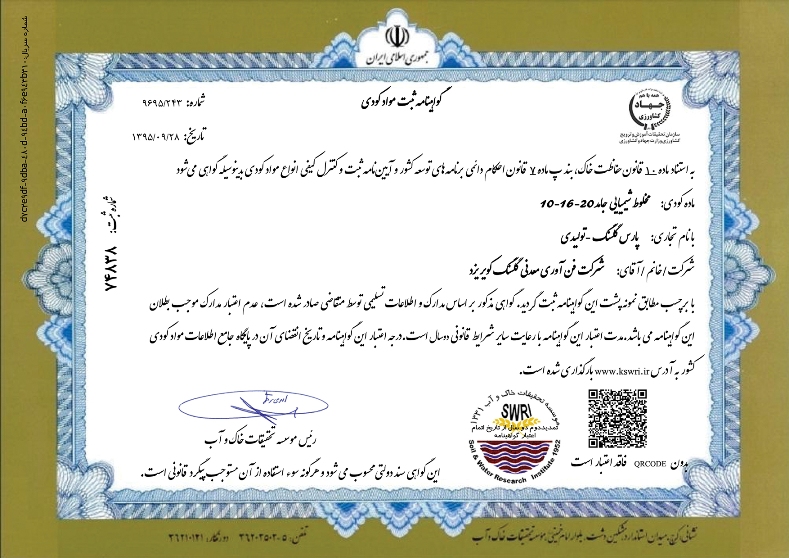 شماره سریال:
جمهوری اسلامی ایران
گواهینامه ثبت مواد کودی
شماره: ۹۶۹۵/۲۴۳
تاریخ: ۱۳۹۵/۰۹/۲۸
همه با هم
جهاد
کشاورزی
سازمان تحقیقات، آموزش و ترویج
کشاورزی وزارت جهاد کشاورزی
شماره ثبت: ۷۴۸۳۸
به استناد ماده ۱۰ قانون حفاظت خاک، بند پ ماده ۷ قانون احکام دائمی برنامه های توسعه کشور و آیین نامه ثبت و کنترل کیفی انواع مواد کودی بدینوسیله گواهی می شود
ماده کودی: مخلوط شیمیایی جامد 20-16-10
با نام تجاری: پارس گلسنگ -تولیدی
شرکت / خانم / آقای: شرکت فن آوری معدنی گلسنگ کویر یزد
با برچسب مطابق نمونه پشت این گواهینامه ثبت گردید. گواهی مذکور بر اساس مدارک و اطلاعات تسلیمی توسط متقاضی صادر شده است، عدم اعتبار مدارک موجب بطلان
این گواهینامه می باشد. مدت اعتبار این گواهینامه با رعایت سایر شرایط قانونی دو سال است. درجه اعتبار این گواهینامه و تاریخ انقضای آن در پایگاه جامع اطلاعات مواد کودی
کشور به آدرس www.kswri.ir بارگذاری شده است.
موسسه تحقیقات خاک و آب ۱۳۳۱
SWRI
تمدید دوم دو سال از تاریخ اتمام
اعتبار گواهینامه
Soil & Water Research Institute 1952
رئیس موسسه تحقیقات خاک و آب
بدون QRCODE فاقد اعتبار است
این گواهی سند دولتی محسوب می شود و هرگونه سوء استفاده از آن مستوجب پیگرد قانونی است.
نشانی: کرج، میدان استاندارد، مشکین دشت، بلوار امام خمینی، موسسه تحقیقات خاک و آب
تلفن: ۵-۳۶۲۰۲۵۰۲ دورنگار: ۳۶۲۱۰۱۲۱